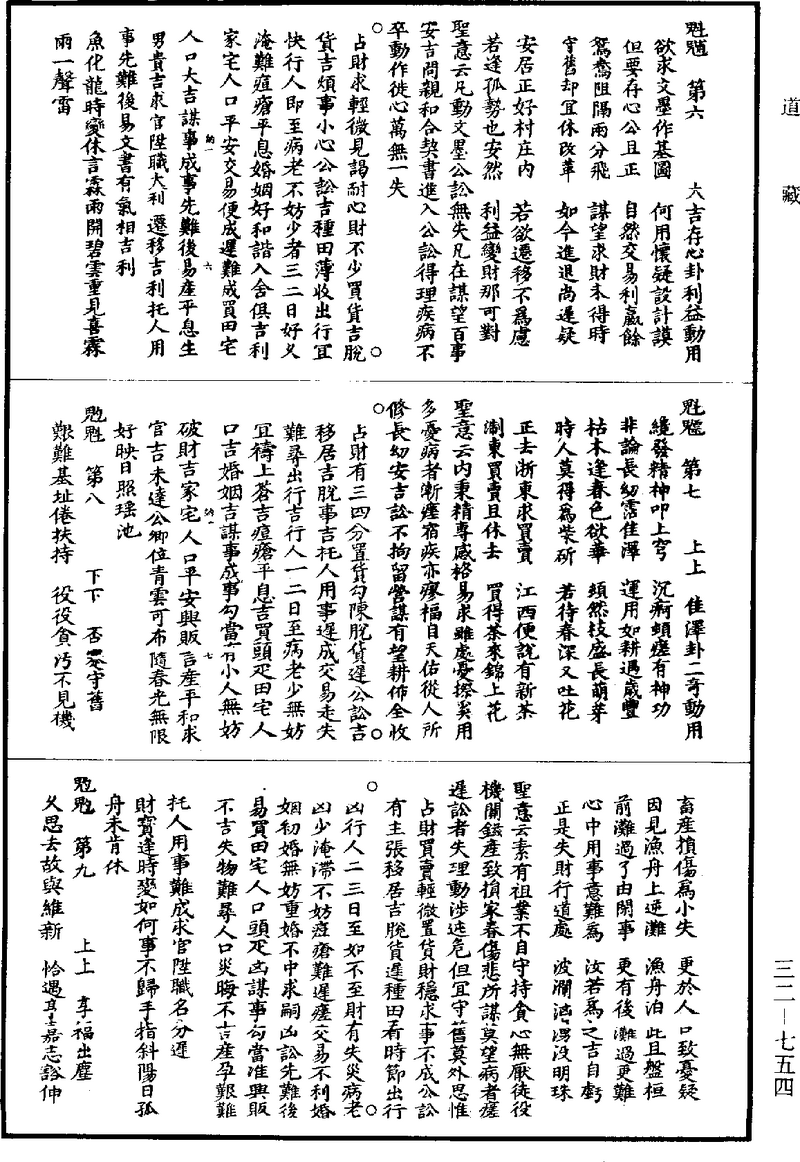 道藏
第六　六吉存心卦利益動用
欲求文墨作基圖　何用懷疑設計謨
但要存心公且正　自然交易利贏餘
鴛鴦阻隔兩分飛　謀望求財未得時
守舊却宜休改革　如今進退尚遲疑
安居正好村庄內　若欲遷移不為慮
若逢孤勢也安然　利益變財那可對
聖意云凡動文墨公訟無失凡在謀望百事
安吉問親和合契書進入公訟得理疾病不
卒動作從心萬無一失
占財求輕微見謁耐心財不少買貨吉脫
貨吉煩事小心公訟吉種田薄收出行宜
快行人即至病老不妨少者三二日好乂
淹難痘瘡平息婚姻好和諧入舍俱吉利
家宅人口平安交易便成遲難成買田宅
人口大吉謀事成事先難後易產平息生
男貴吉求官陞職大利遷移吉利托人用
事先難後易文書有氣相吉利
魚化龍時變休言霖雨開碧雲重見喜霖
雨一聲雷
第七　上上　佳澤卦二奇動用
纔發精神叩上穹　沉痾頓瘥有神功
非論長幼霑佳澤　運用如耕遇歲豐
枯木逢春色欲華　頻然枝盛長萌芽
時人莫得為柴斫　若待春深又吐花
正去浙東求買賣　江西便說有新茶
淛東買賣且休去　買得茶來錦上花
聖意云內秉精專感格易求雖處憂撩奚用
多憂病者漸瘥宿疾亦瘳福自天佑從人所
修長幼安吉訟不拘留營謀有望耕佈全收
占財有三四分置貨勾陳脫貨遲公訟吉
移居吉脫事吉托人用事遲成交易走失
難尋出行吉行人一二日至病老少無妨
宜禱上蒼吉痘瘡平息吉買頭疋田宅人
口吉婚姻吉謀事成事勾當有小人無妨
破財吉家宅人口平安興販吉產平和求
官吉未達公卿位青雲可布隨春光無限
好映日照瑤池
第八　下下　否　守舊
艱難基址倦扶持　役役貪污不見機
畜產損傷為小失　更於人口致憂疑
因見漁舟上逆灘　漁舟泊此且盤桓
前灘過了由閑事　更有後灘過更難
心中用事意難為　汝若為之吉自虧
正是失財行道處　波瀾洶湧没明珠
聖意云素有祖業不自守持貪心無厭徒役
機關鎡產致損家眷傷悲所謀莫望病者瘥
遲訟者失理動涉迍危但宜守舊莫外思惟
占財買賣輕微置貨財穩求事不成公訟
有主張移居吉脫貨遲種田看時節出行
凶行人二三日至如不至財有失災病老
凶少淹滯不妨痘瘡難遲瘥交易不利婚
姻初婚無妨重婚不中求嗣凶訟先難後
易買田宅人口頭疋凶謀事勾當准興販
不吉失物難尋人口災晦不吉產孕艱難
托人用事難成求官陞職名分遲
財寶達時變如何事不歸手指斜陽日孤
舟未肯休
第九　上上　享福出塵
久思去故與維新　恰遇　嘉志豁伸
三二—七五四